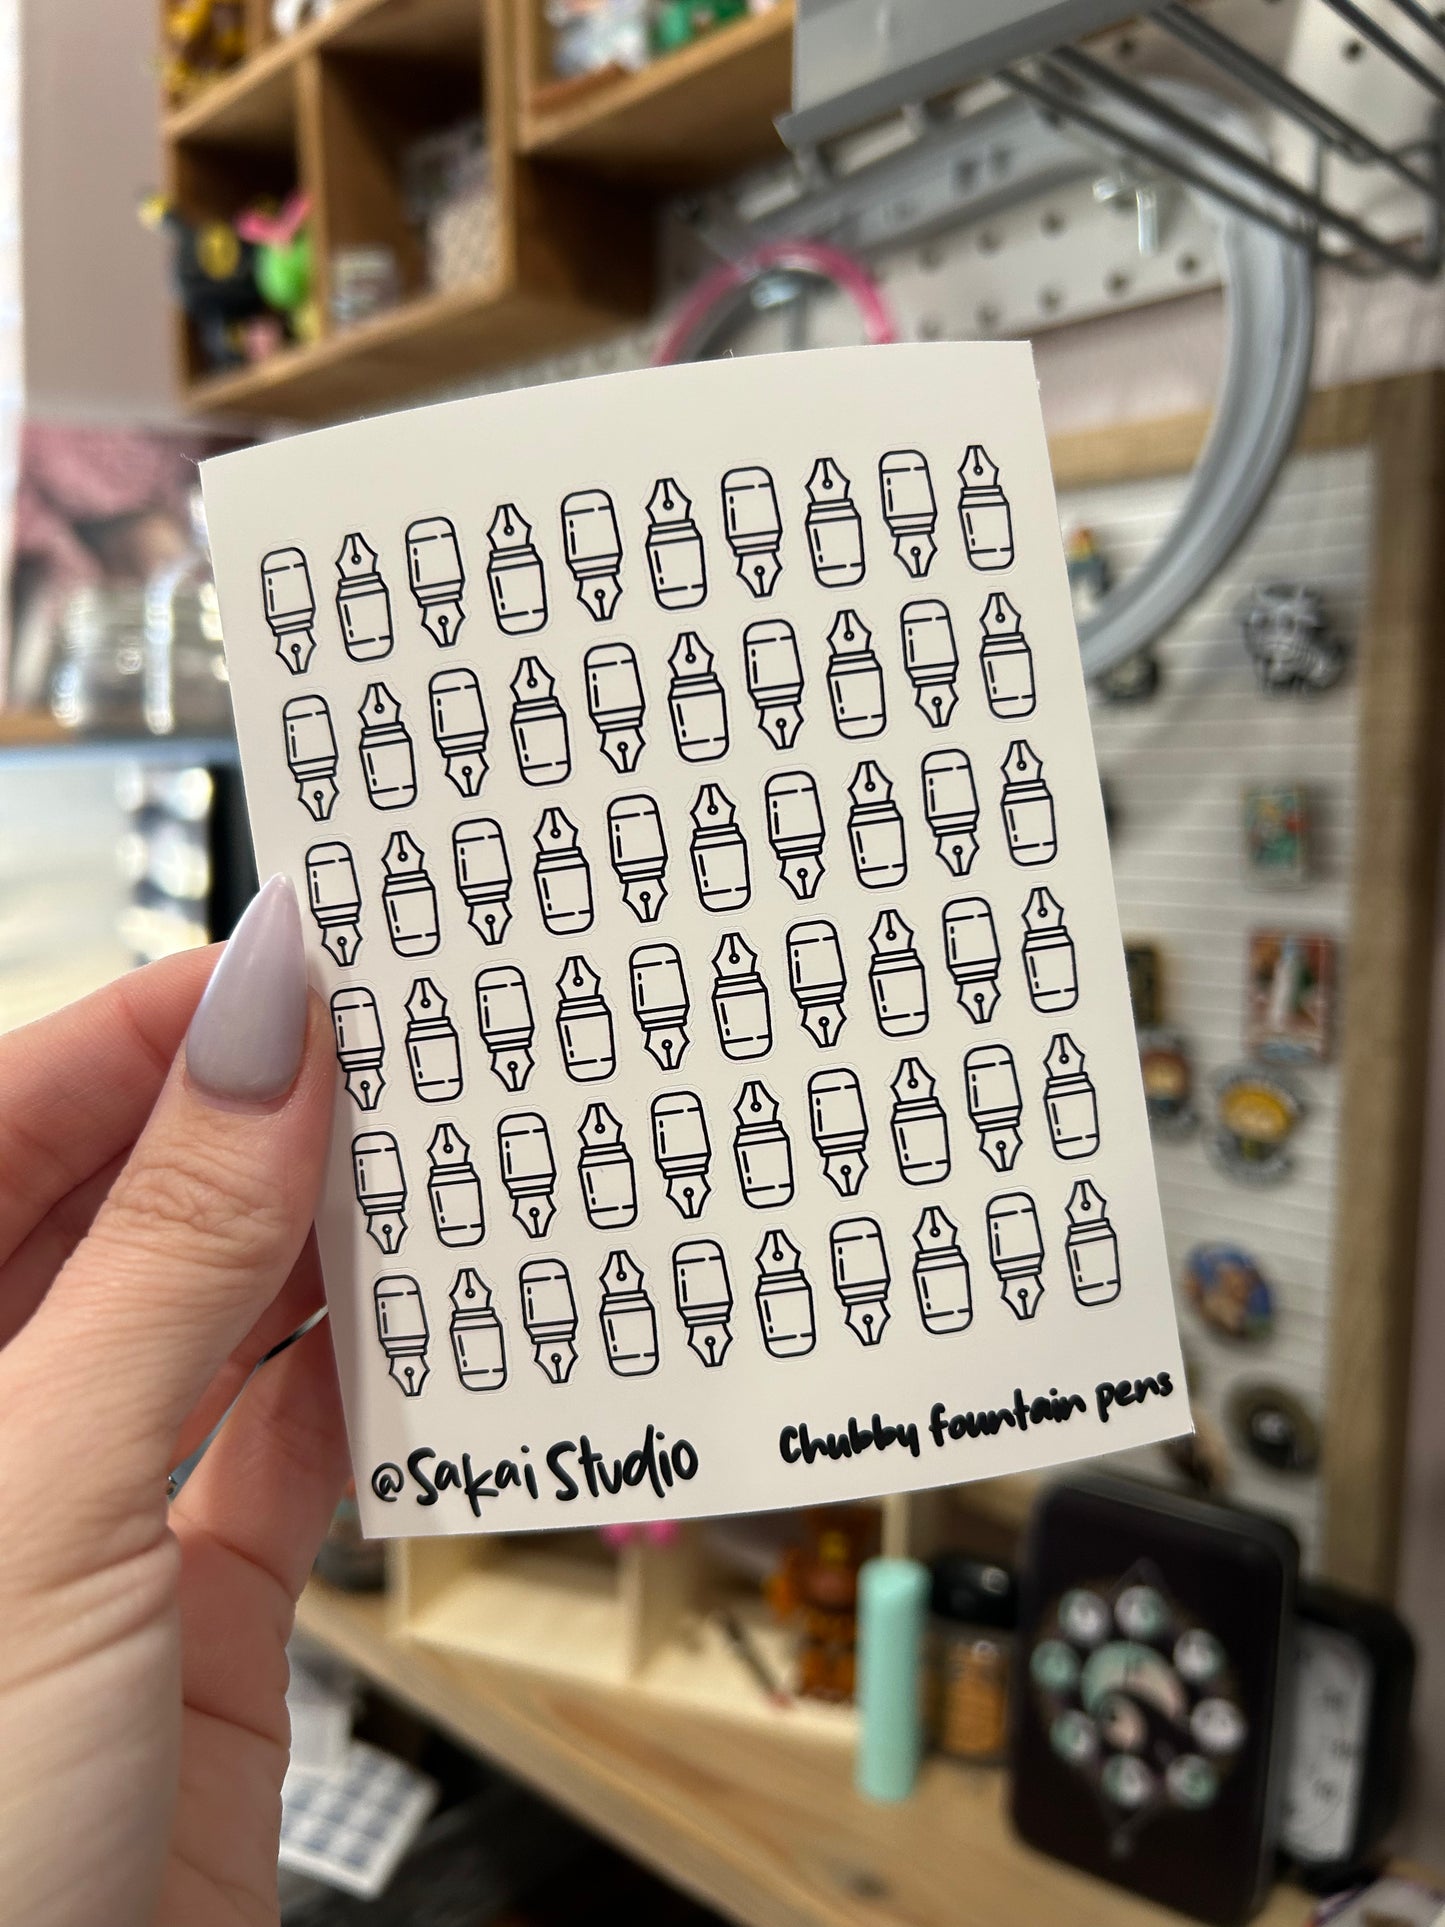 @Sakai Studio
Chubby fountain pens